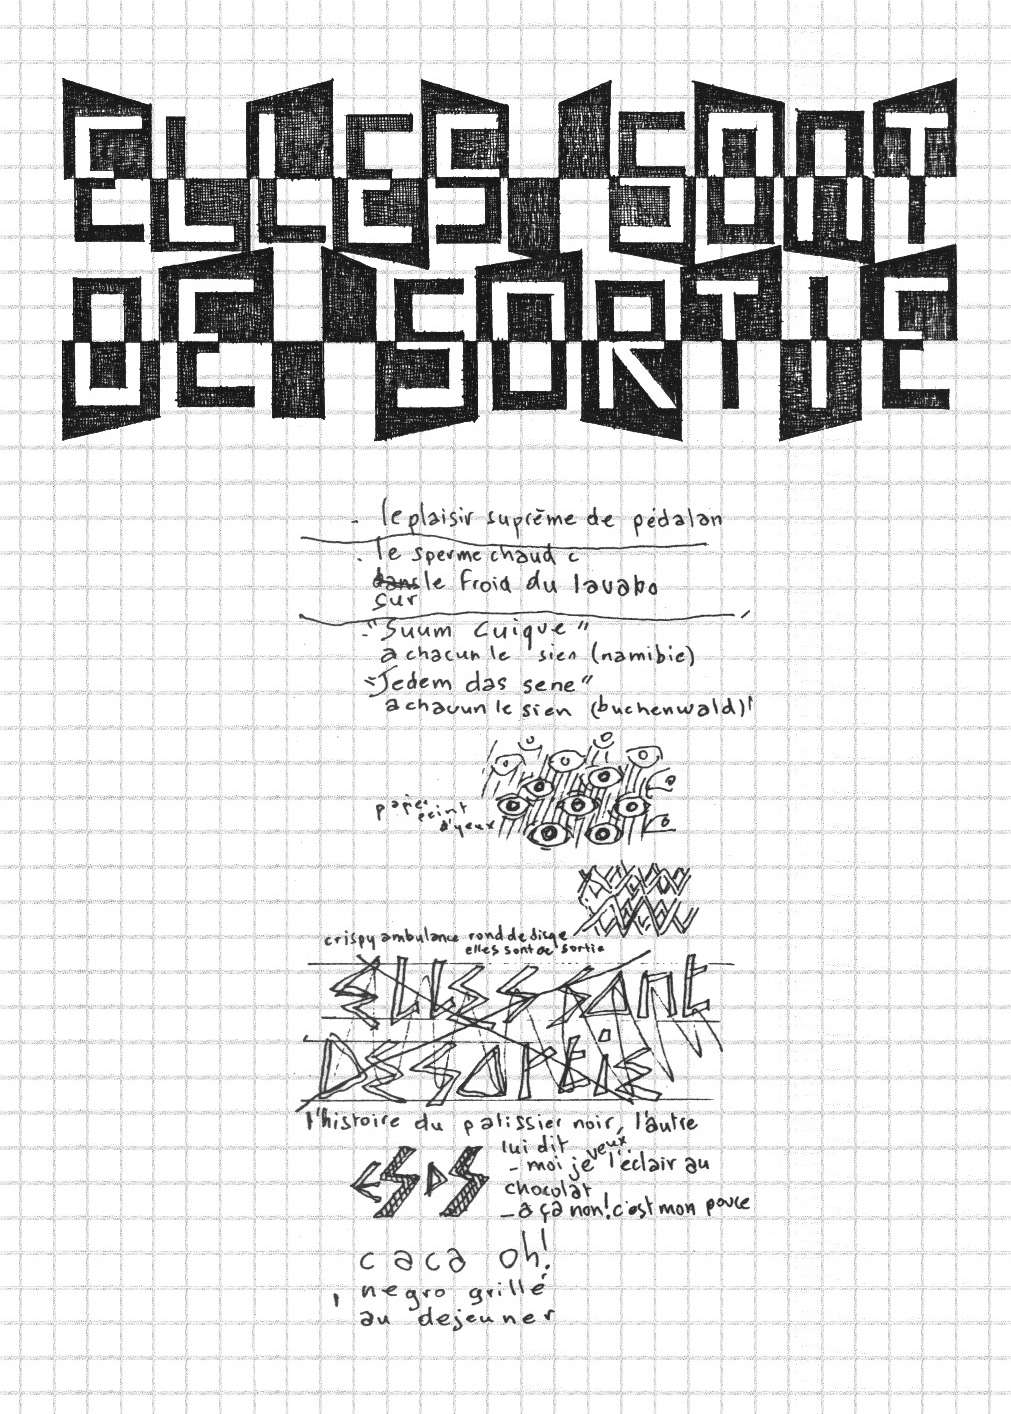 ELLES SONT
DE SORTIE
- le plaisir suprême de pédalan
. le sperme chaud c
dans le froid du lavabo
sur
-"Suum Cuique"
a chacun le sien (namibie)
"Jedem das sene"
a chacun le sien (buchenwald)'
papier
peint
d'yeux
crispy ambulance rond de disqe
elles sont de sortie
ELLES SONT
DE SORTiE
l'histoire du patissier noir, l'autre
lui dit
- moi je veux l'éclair au
chocolat
- a ça non! c'est mon pouce
ESDS
caca oh!
negro grillé
au dejeuner